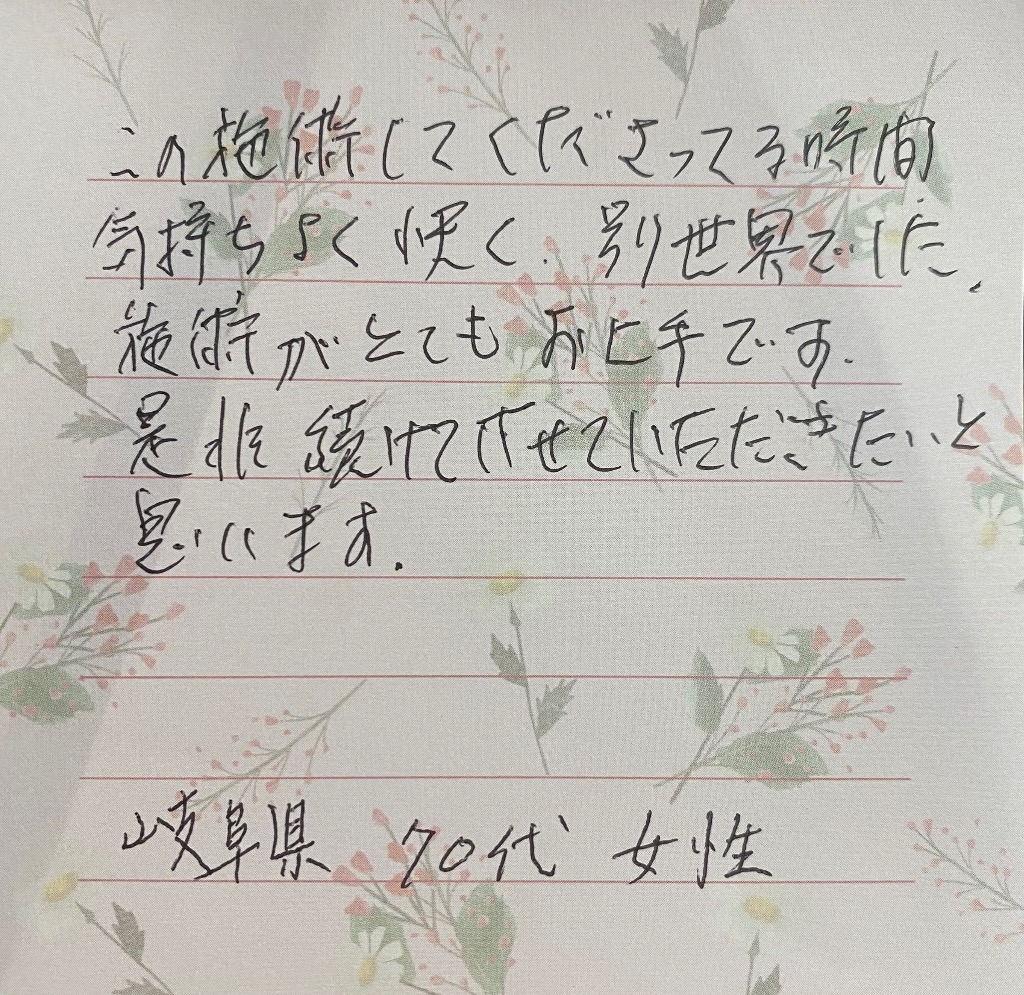 この施術してくださってる時間
気持ちよく快く、別世界でした、
施術がとてもお上手です.
是非続けてさせていただきたいと
思います.
岐阜県 70代 女性